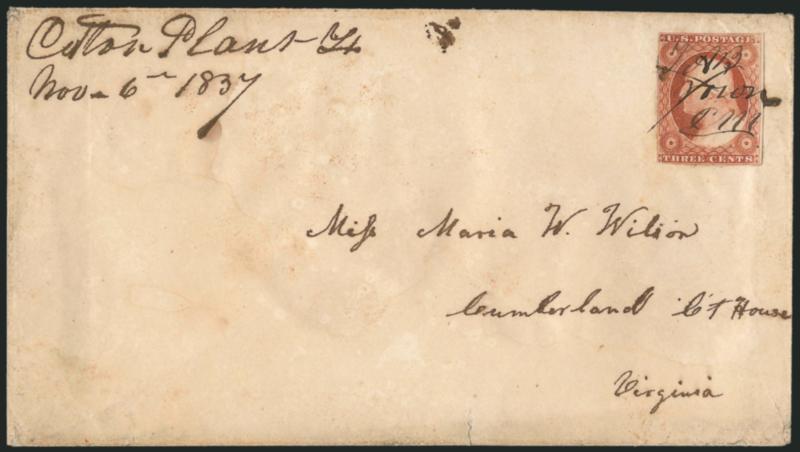 Cotton Plant
Nov. 6th 1857
U.S. POSTAGE
Brown
P M
THREE CENTS
Miss Maria W. Wilson
Cumberland Ct House
Virginia